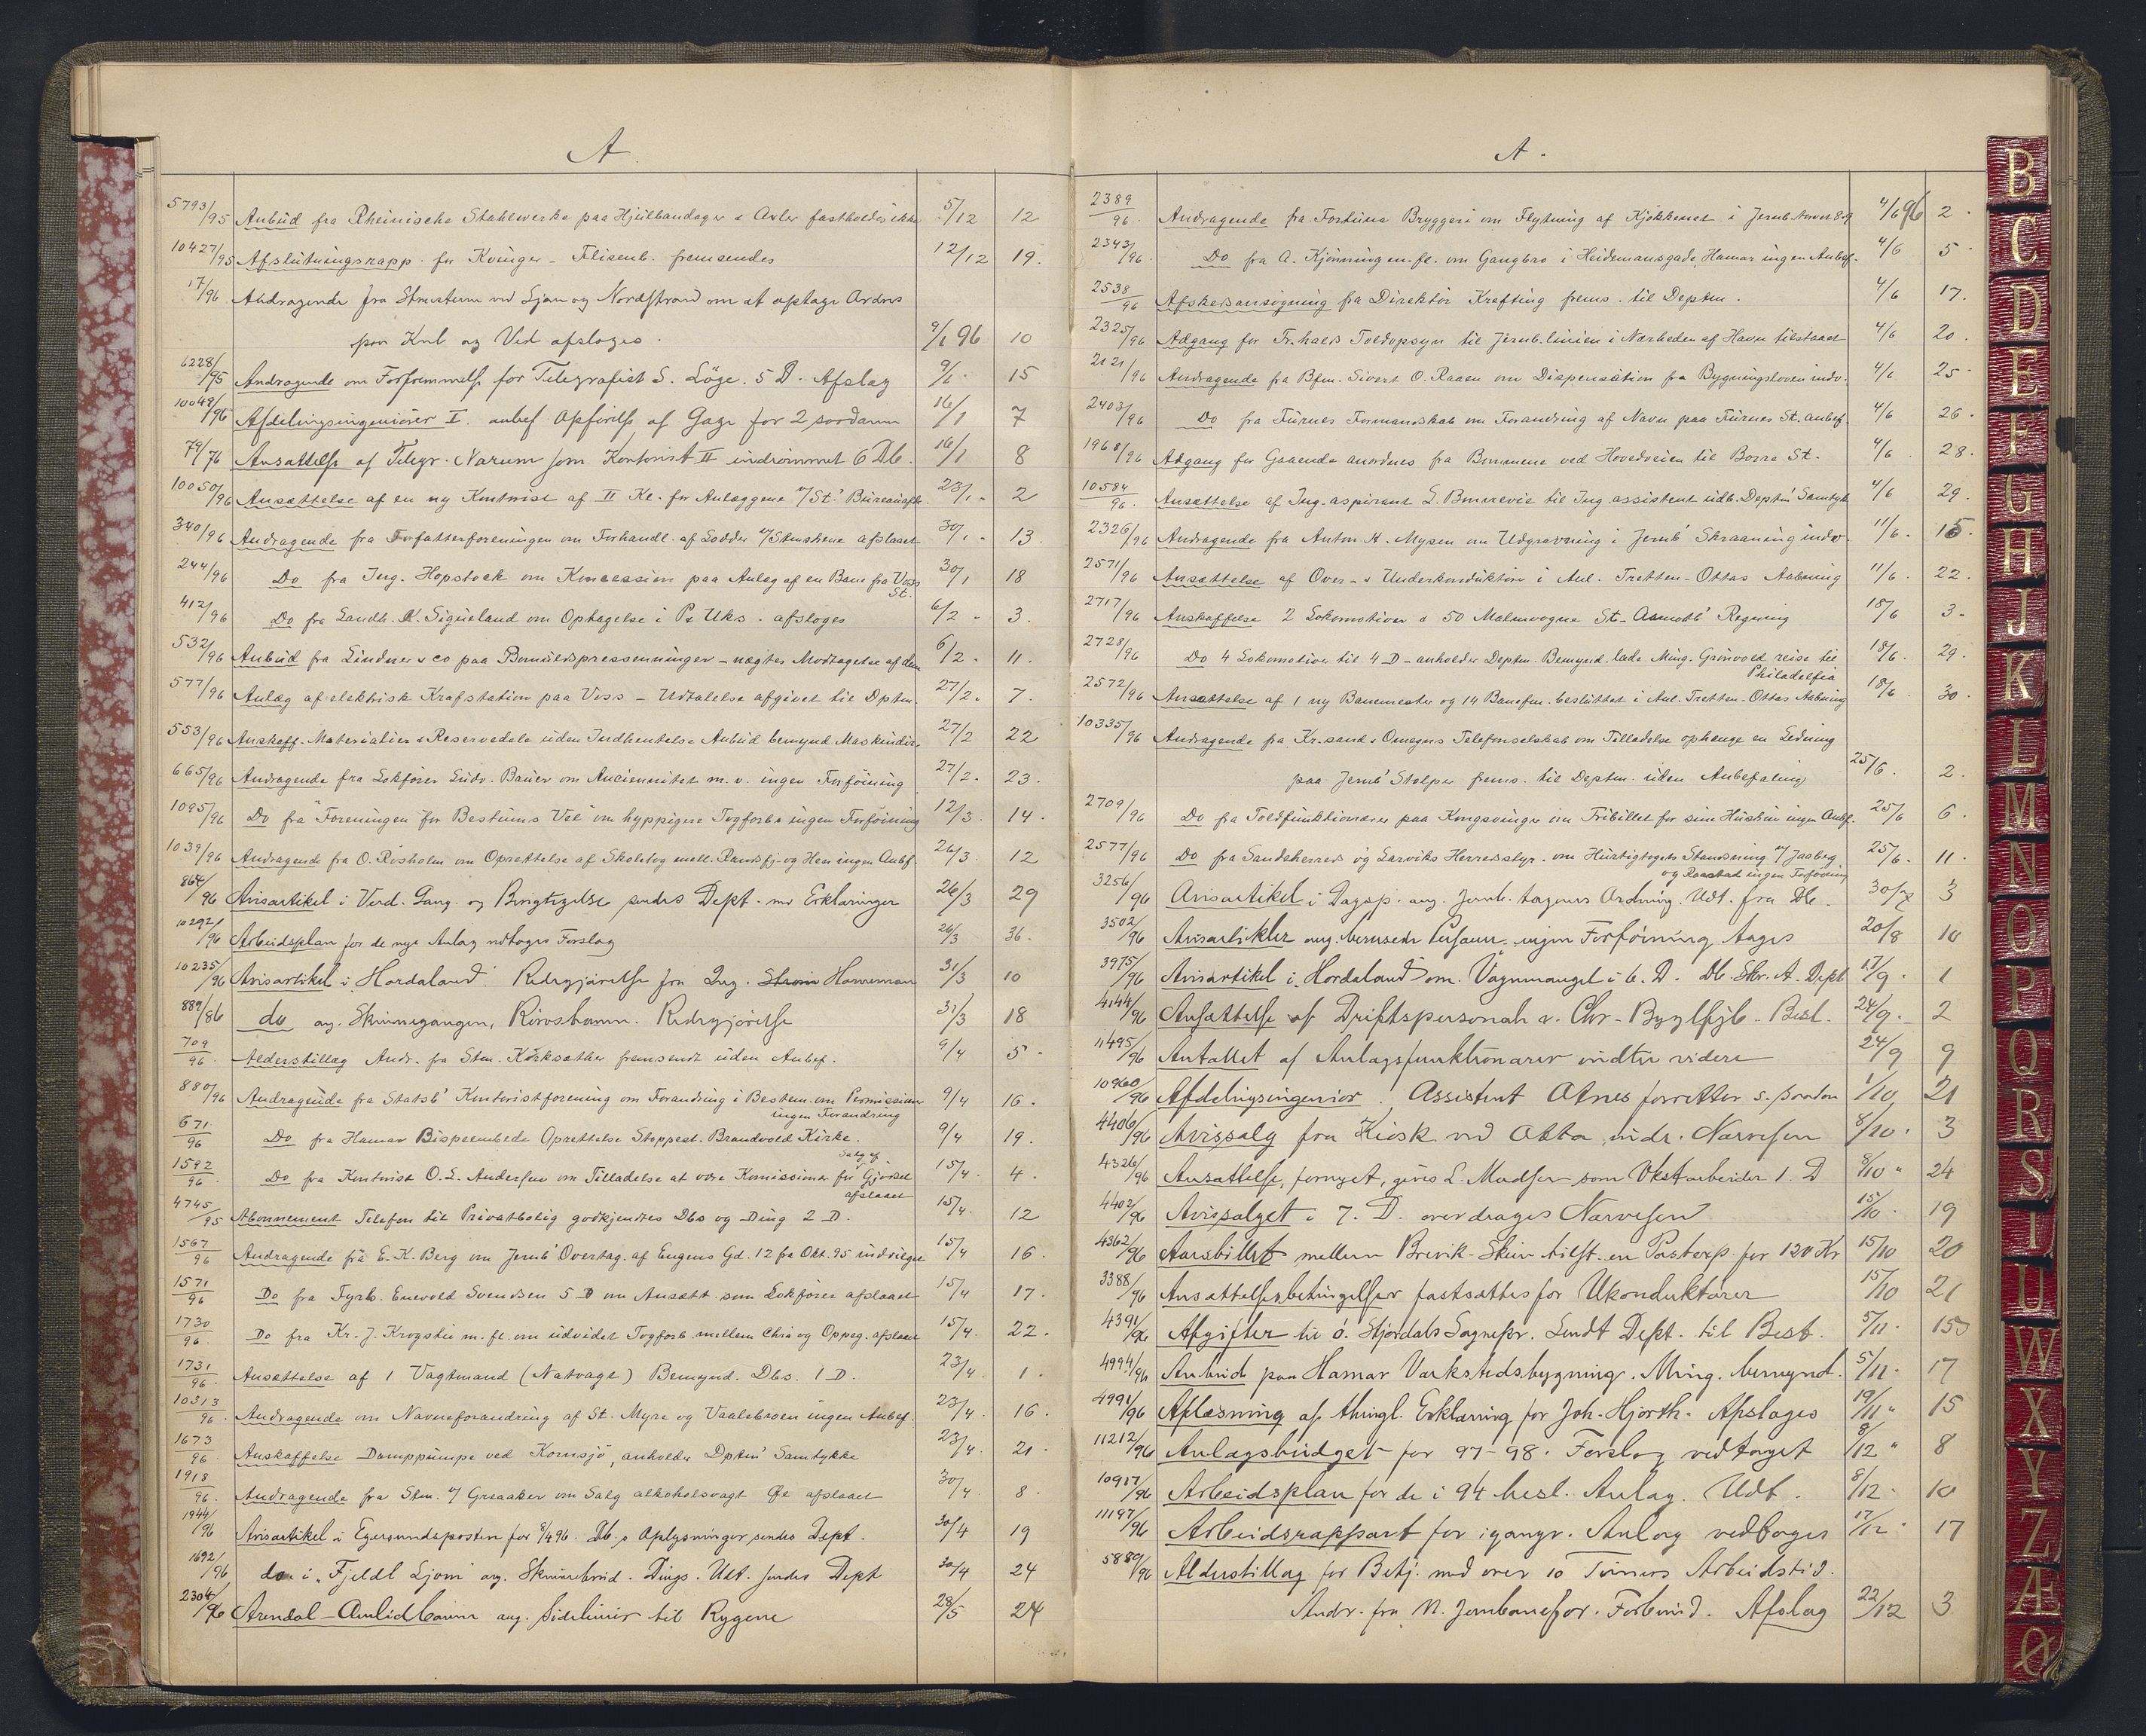 A.
5793/95 Anbud fra Rheinische Stahlwerke paa Hjulbandager & Axler fastholdes ikke 5/12 12
10427/95 Afslutningsrapp. for Kvinger - Flisenb. fremsendes 12/12 19.
17/96 Andragende fra ved Ljan og Nordstrand om at optage Ordres
paa Kul og Ved afslages. 9/1 96 10
6228/95 Andragende om Forfremmelse for Telegrafist S. Löge. 5 D. Afslag 9/1. 15
10048/96 Afdelingsingeniører I. anbef. Opførelse af Gage for 2 saadanne 16/1 7
79/76 Ansættelse af Telegr. Narum som Kontorist II indrømmet 6 Db. 16/1 8
10050/96 Ansættelse af en ny Kontorist af II Kl. for Anlæggene v/St. 23/1. 2
340/96 Andragende fra Forfatterforeningen om Forhandl. af Lodder v/Stationene afslaaet 30/1. 13.
244/96 Do fra Ing. Hopstock om Koncession paa Anlæg af en Bane fra Voss St. 30/1 18
412/96 Do fra Landh. K. Sigueland om Optagelse i P. Uks. afslages 6/2. 3.
532/96 Anbud fra Lindner & co paa Bomuldspressenninger - nægtes Modtagelse af dem 6/2. 11.
577/96 Anlæg af elektrisk Krafstation paa Voss - Udtalelse afgivet til Dptm. 27/2. 7.
553/96 Anskaff. Materialier & Reservedele uden Indhentelse Anbud bemynd. Maskindir. 27/2 22
665/96 Andragende fra Lokfører Ludv. Bauer om Anciennitet m. v. ingen Forföining 27/2. 23.
1095/96 Do fra "Foreningen for Bestums Vel" om hyppigere Togforb. ingen Forföining 12/3. 14.
1039/96 Andragende fra O. Rosholm om Oprettelse af Skoletog mell. Randsfj. og Hen ingen Anbf. 26/3. 12
864/96 Avisartikel i Verd. Gang. og sendes Dept. m. Erklæringer 26/3 29
10292/96 Arbeidsplan for de nye Anlæg vedtages Forslag 26/3 36.
10235/96 Avisartikel i "Hordaland" Redegjørelse fra Ing. Strøm Hanneman 31/3 10
889/86 do ang. Skinnegangen, Rørosbanen. Redegjørelse 31/3 18
709/96 Alderstillæg Andr. fra Stm. Kirksæther fremsendt uden Anbef. 9/4 5.
880/96 Andragende fra Statsb' Kontoristforening om Forandring i Bestem. om Permission 9/4 16.
ingen Forandring
671/96 Do fra Hamar Bispeembede Oprettelse Stoppest. Brandvold Kirke. 9/4 19.
1592/96 Do fra Kontorist O. L. Andersen om Tilladelse at være Komissionær for Salg af Gjødsel 15/4. 4.
afslaaet
4745/95 Abonnement Telefon til Privatbolig godkjendtes Dbs og Ding 2 D. 15/4. 12
1567/96 Andragende fra E. K. Berg om Jernb' Overtag. af Eugens Gd. 12 fra Okt. 95 indvilges 15/4 16.
1571/96 Do fra Fyrb. Enevold Svendsen 5 D om Ansætt. som Lokfører afslaaet 15/4 17.
1730/96 Do fra Kr. J. Krogstie m. fl. om udvidet Togforb. mellem Chra og Oppeg. afslaaet 15/4. 22.
1731/96 Ansættelse af 1 Vagtmand (Natvagt) Bemynd. Dbs. 1 D. 23/4. 1.
10313/96 Andragende om Navneforandring af St. Myre og Vaalebroen ingen Anbef. 23/4. 16.
1673/96 Anskaffelse Damppumpe ved Kornsjø, anholdes Dptms' Samtykke 23/4. 21.
1918/96 Andragende fra Stm. v/ Graaker om Salg alkoholsvagt Øl afslaaet 30/4 8.
1944/96 Avisartikel i Egersundsposten for 8/4 96. Db.s Oplysninger sendes Dept. 30/4 19
1692/96 do i "Fjeldl Ljom" ang. Skinnebrud. Dings. Udt. sendes Dept 30/4 24
2304/96 Arendal-Amlidbanen ang. Sidelinier til Rygene 28/5 24
A.
2389/96 Andragende fra Fortuna Bryggeri om Flytning af Kjøkkenet i Jernb. 4/6 96 2.
2343/96 Do fra A. Kjønning m. fl. om Gangbro i Heidemansgade, Hamar ingen Anbef. 4/6 5
2538/96 Afskedsansøgning fra Direktör Krefting frems. til Deptm. 4/6 17.
2325/96 Adgang for Fr.halds Toldopsyn til Jernb.linien i Nærheden af Havn tilstaaet 4/6 20.
2121/96 Andragende fra Bfm. Sivert O. Raaen om Dispensation fra Bygningsloven indv. 4/6 25.
2403/96 Do fra Furnes Formandskab om Forandring af Navn paa Furnes St. anbef. 4/6 26.
1968/96 Adgang for Gaaende anordnes fra Bommene ved Hovedveien til Borre St. 4/6. 28.
10584/96 Ansættelse af Ing.aspirant L. til Ing.assistent udb. Deptms' Samtyk. 4/6 29.
2326/96 Andragende fra Anton A. Mysen om Udgravning i Jernb' Skraaning indv. 11/6. 15.
2571/96 Ansættelse af Over- & Underkonduktører i Anl. Tretten-Ottas Aabning 11/6. 22.
2717/96 Anskaffelse 2 Lokomotiver & 50 Malmvogne St.-Aamots' Regning 18/6 3.
2728/96 Do 4 Lokomotiver til 4 D - anholder Deptm. Bemynd. lade Ming. Grönvold reise til 18/6. 29.
Philadelfia
2572/96 Ansættelse af 1 ny Banemester og 14 Banefm. besluttet i Anl. Tretten-Ottas Aabning 18/6. 30.
10335/96 Andragende fra Kr.sand & Omegns Telefonselskab om Tilladelse ophænge en Ledning
paa Jernb' Stolper frems. til Deptm. uden Anbefaling 25/6. 2.
2709/96 Do fra Toldfunktionærer paa Kongsvinger om Fribillet for sine Hustruer ingen Anbf. 25/6 6.
2577/96 Do fra Sandeherred og Larviks Herredsstyr. om Hurtigtogets Standsning v/ Jaaberg 25/6. 11.
og Raastad ingen Forföining
3256/96 Avisartikel i Dagsp. ang. Jernb. tagenes Ordning. Udt. fra Db. 30/7 3
3502/96 Avisartikler ang. ingen Forføining tages 20/8 10
3975/96 Avisartikel i "Hordaland" om Vognmangel i 6. D. Db. Skr. A. Dept 17/9. 1
4144/96 Ansættelse af Driftspersonale v. Chr.-Byglfjb. Besl. 24/9. 2
11495/96 Antallet af Anlægsfunktionærer indtil videre 24/9 9
10960/96 Afdelingsingeniør. Assistent Atnes forretter s. saadan 1/10 21
4406/96 Avissalg fra Kiosk ved Otta indr. Narvesen 8/10. 3
4326/96 Ansættelse, fornyet, gives L. Madsen som Vkstarbeider 1. D 8/10 " 24
4402/96 Avissalget i 7. D. overdrages Narvesen 15/10. 19
4362/96 Aarsbillet mellem Brevik-Skien tilst. en Postexp. for 120 Kr 15/10 20
3388/96 Ansættelsesbetingelser fastsættes for Ukonduktører 15/10 21
4391/96 Afgifter til ö. Stjørdals Sognepr. Sendt Dept. til Best. 5/11. 15
4994/96 Anbud paa Hamar Værkstedsbygning. Ming. bemynd. 5/11. 17
4991/96 Aflæsning af thingl. Erklæring for Joh. Hjorth. Afslages 19/11 " 15
11212/96 Anlægsbudget for 97-98. Forslag vedtaget 8/12 " 8
10917/96 Arbeidsplan for de i 94 besl. Anlæg. Udt. 8/12. 10
11197/96 Arbeidsrapport for igangv. Anlæg vedtages 17/12. 17
5889/96 Alderstillæg for Betj. med over 10 Timers Arbeidstid.
Andr. fra N. Jernbanefor. Forbund. Afslag 22/12 3
B
C
D
E
F
G
H
J
K
L
M
N
O
P
Q
R
S
T
U
W
X
Y
Z
Æ
Ø